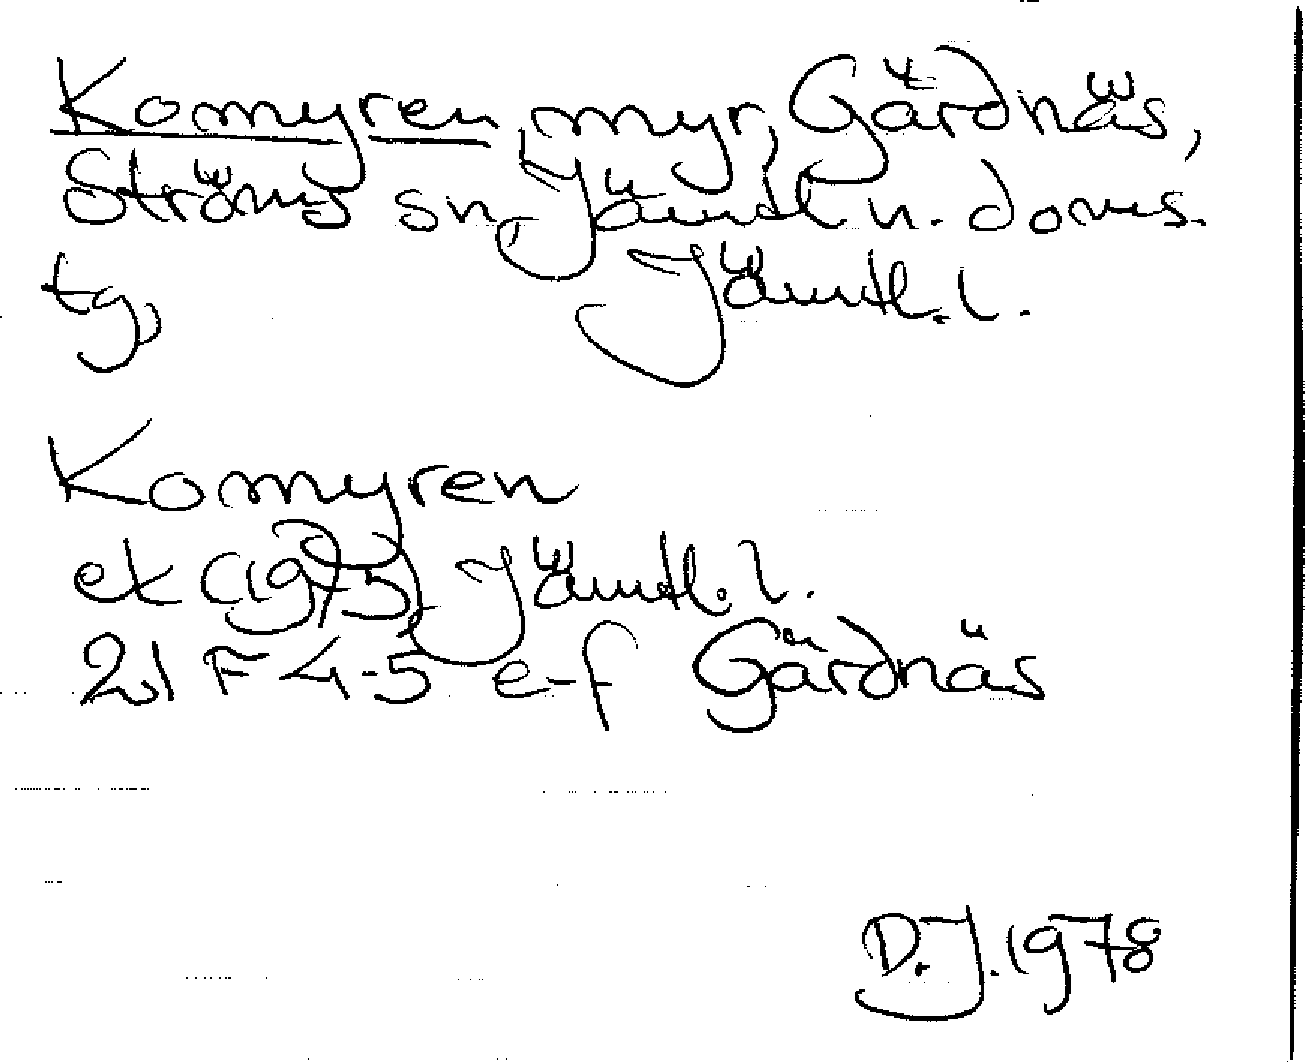 Komyren, myr, Gärdnäs,
Ströms sn, Jämtl. n. doms.
tg, Jämtl. l.
Komyren
ek (1975) Jämtl. l.
21 F 4-5 e-f Gärdnäs
D.J. 1978